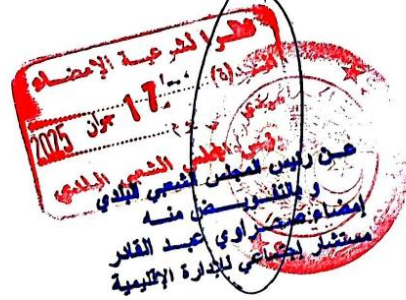 نظرا لشرعية الإمضاء
17 جوان 2025
رئيس المجلس الشعبي البلدي
عن رئيس المجلس الشعبي البلدي
و بالتفويض منه
إمضاء صحراوي عبد القادر
مستشار اجتماعي للإدارة الإقليمية